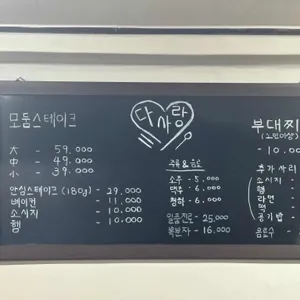 모둠스테이크
大 - 59,000
中 - 49,000
小 - 39,000
안심스테이크 (180g) - 29,000
베이컨 - 11,000
소시지 - 10,000
햄 - 10,000
다사랑
주류 & 음료
소주 - 5,000
맥주 - 6,000
청하 - 6,000
일품진로 - 25,000
복분자 - 16,000
부대찌
(2인이상)
- 10.00
추가 사리
소시지 -
햄 -
라면 -
떡 -
공기밥 -
음료수 -